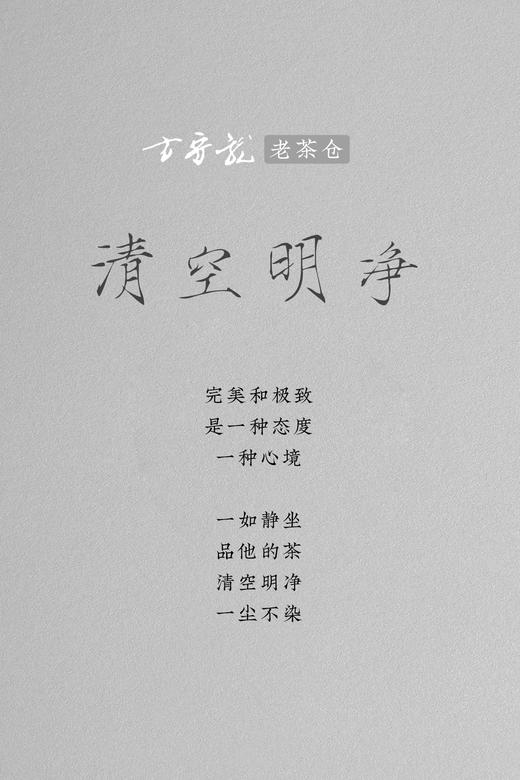 古守龙 老茶仓
清空明净
完美和极致
是一种态度
一种心境
一如静坐
品他的茶
清空明净
一尘不染